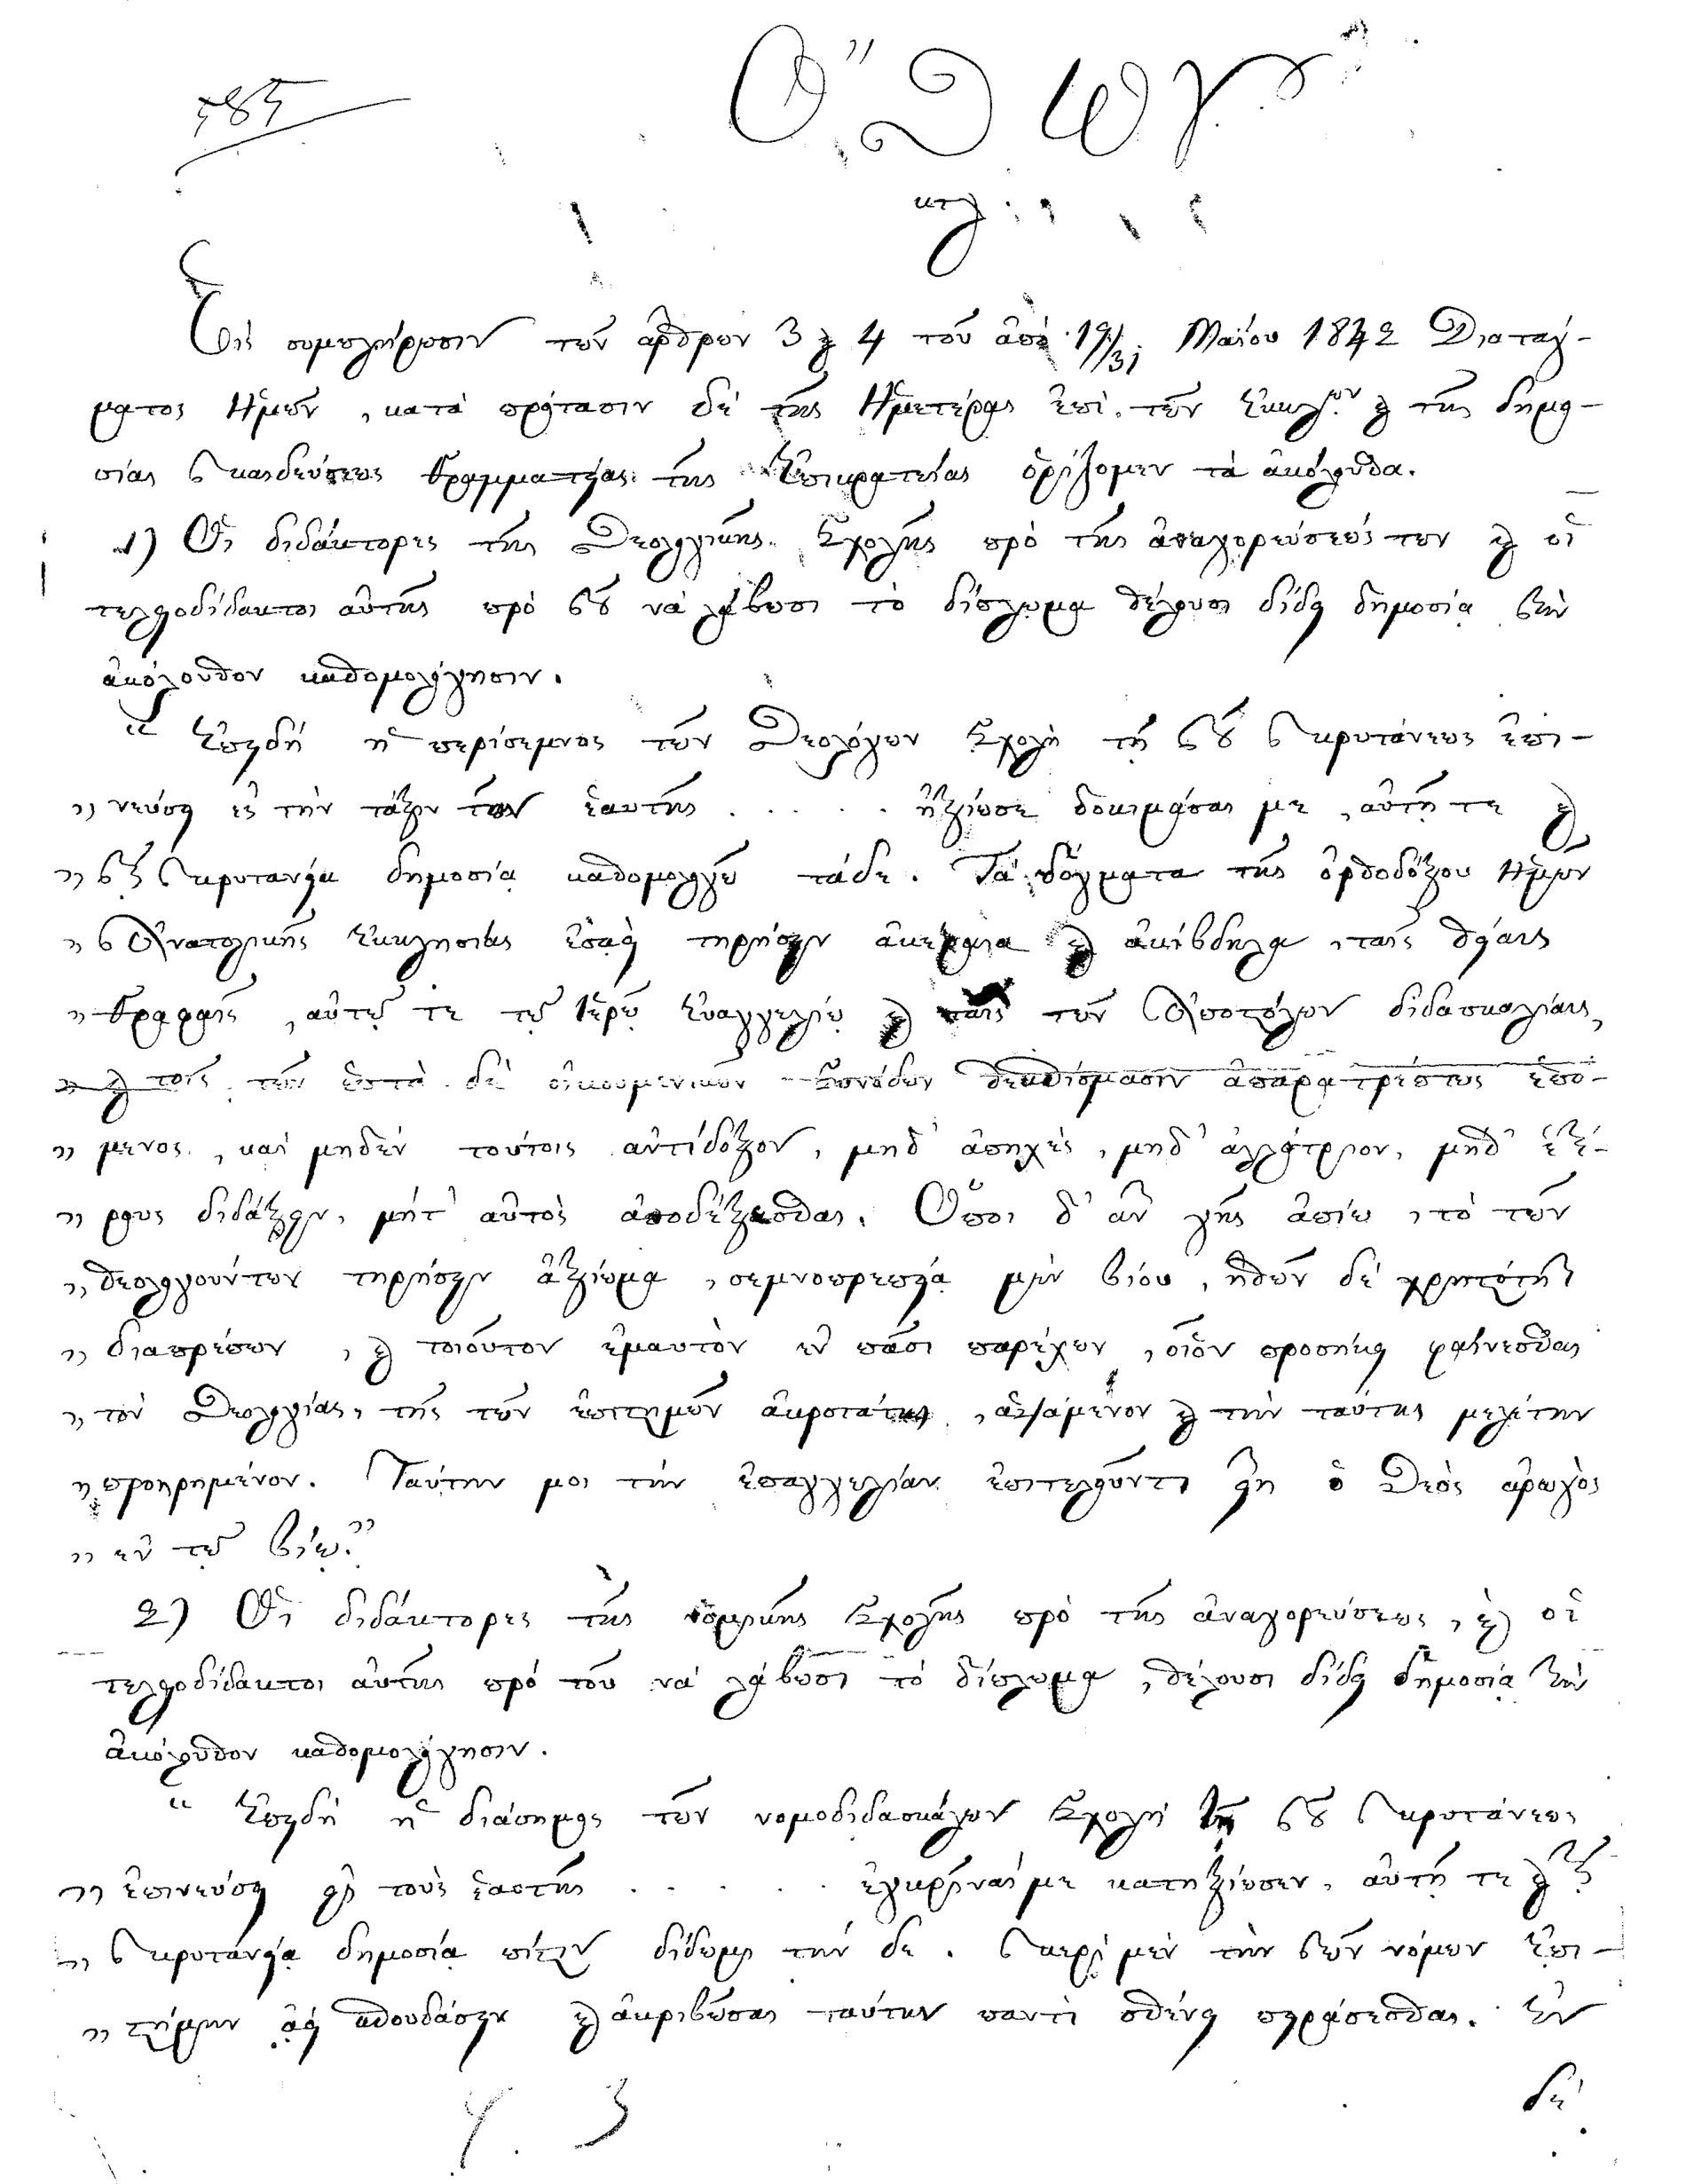 585
ΟΘΩΝ
κτλ
Εἰς συμπλήρωσιν τῶν ἄρθρων 3 καὶ 4 τοῦ ἀπὸ 19/31 Μαΐου 1842 Διατάγ-
ματος Ἡμῶν, κατὰ πρότασιν δὲ τῆς Ἡμετέρας ἐπὶ τῶν Ἐκκλ.ῶν καὶ τῆς δημο-
σίας Ἐκπαιδεύσεως Γραμματείας τῆς Ἐπικρατείας ὁρίζομεν τὰ ἀκόλουθα.
1) Οἱ διδάκτορες τῆς Θεολογικῆς Σχολῆς πρὸ τῆς ἀναγορεύσεώς των καὶ οἱ
τελειοδίδακτοι αὐτῆς πρὸ τοῦ νὰ λάβωσι τὸ δίπλωμα θέλουσι δίδει δημοσίᾳ τὴν
ἀκόλουθον καθομολόγησιν.
" Ἐπειδὴ ἡ περίσεμνος τῶν Θεολόγων Σχολὴ τῇ τοῦ Πρυτάνεως ἐπι-
" νεύσει εἰς τὴν τάξιν τῶν ἑαυτῆς . . . . . ἠξίωσε δοκιμάσαι με, αὐτῇ τε καὶ
" τῇ Πρυτανείᾳ δημοσίᾳ καθομολογῶ τάδε. Τὰ δόγματα τῆς ὀρθοδόξου Ἡμῶν
" Ἀνατολικῆς Ἐκκλησίας ἐσαεὶ τηρήσειν ἀκέραια καὶ ἀκίβδηλα, ταῖς θείαις
" Γραφαῖς, αὐτῷ τε τῷ Ἱερῷ Εὐαγγελίῳ καὶ ταῖς τῶν Ἀποστόλων διδασκαλίαις,
" καὶ τοῖς τῶν ἑπτὰ δὲ οἰκουμενικῶν Συνόδων θεσπίσμασιν ἀπαρατρέπτως ἑπό-
" μενος, καὶ μηδὲν τούτοις ἀντίδοξον, μηδ' ἀπηχὲς, μηδ' ἀλλότριον, μηδ' ἑτέ-
" ρους διδάξειν, μήτ' αὐτὸς ἀποδέξεσθαι. Ὅποι δ' ἂν γῆς ἀπίω, τὸ τῶν
" θεολογούντων τηρήσειν ἀξίωμα, σεμνοπρεπείᾳ μὲν βίου, ἠθῶν δὲ χρηστότητι
" διαπρέπων, καὶ τοιοῦτον ἐμαυτὸν ἐν πᾶσι παρέχων, οἷον προσήκει φαίνεσθαι
" τὸν Θεολογίας, τῆς τῶν ἐπιστημῶν ἀκροτάτης, ἁψάμενον καὶ τὴν ταύτης μελέτην
" προῃρημένον. Ταύτην μοι τὴν ἐπαγγελίαν ἐπιτελοῦντι εἴη ὁ Θεὸς ἀρωγὸς
" ἐν τῷ βίῳ."
2) Οἱ διδάκτορες τῆς νομικῆς Σχολῆς πρὸ τῆς ἀναγορεύσεως, καὶ οἱ
τελειοδίδακτοι αὐτῆς πρὸ τοῦ νὰ λάβωσι τὸ δίπλωμα, θέλουσι δίδει δημοσίᾳ τὴν
ἀκόλουθον καθομολόγησιν.
" Ἐπειδὴ ἡ διάσημος τῶν νομοδιδασκάλων Σχολὴ τῇ τοῦ Πρυτάνεως
" ἐπινεύσει εἰς τοὺς ἑαυτῆς . . . . . ἐγκρῖναί με κατηξίωσεν, αὐτῇ τε καὶ τῇ
" Πρυτανείᾳ δημοσίᾳ πίστιν δίδωμι τήνδε. Περὶ μὲν τὴν τῶν νόμων ἐπι-
" στήμην ἀεὶ σπουδάσειν καὶ ἀκριβῶσαι ταύτην παντὶ σθένει πειράσεσθαι. Ἐν
δὲ